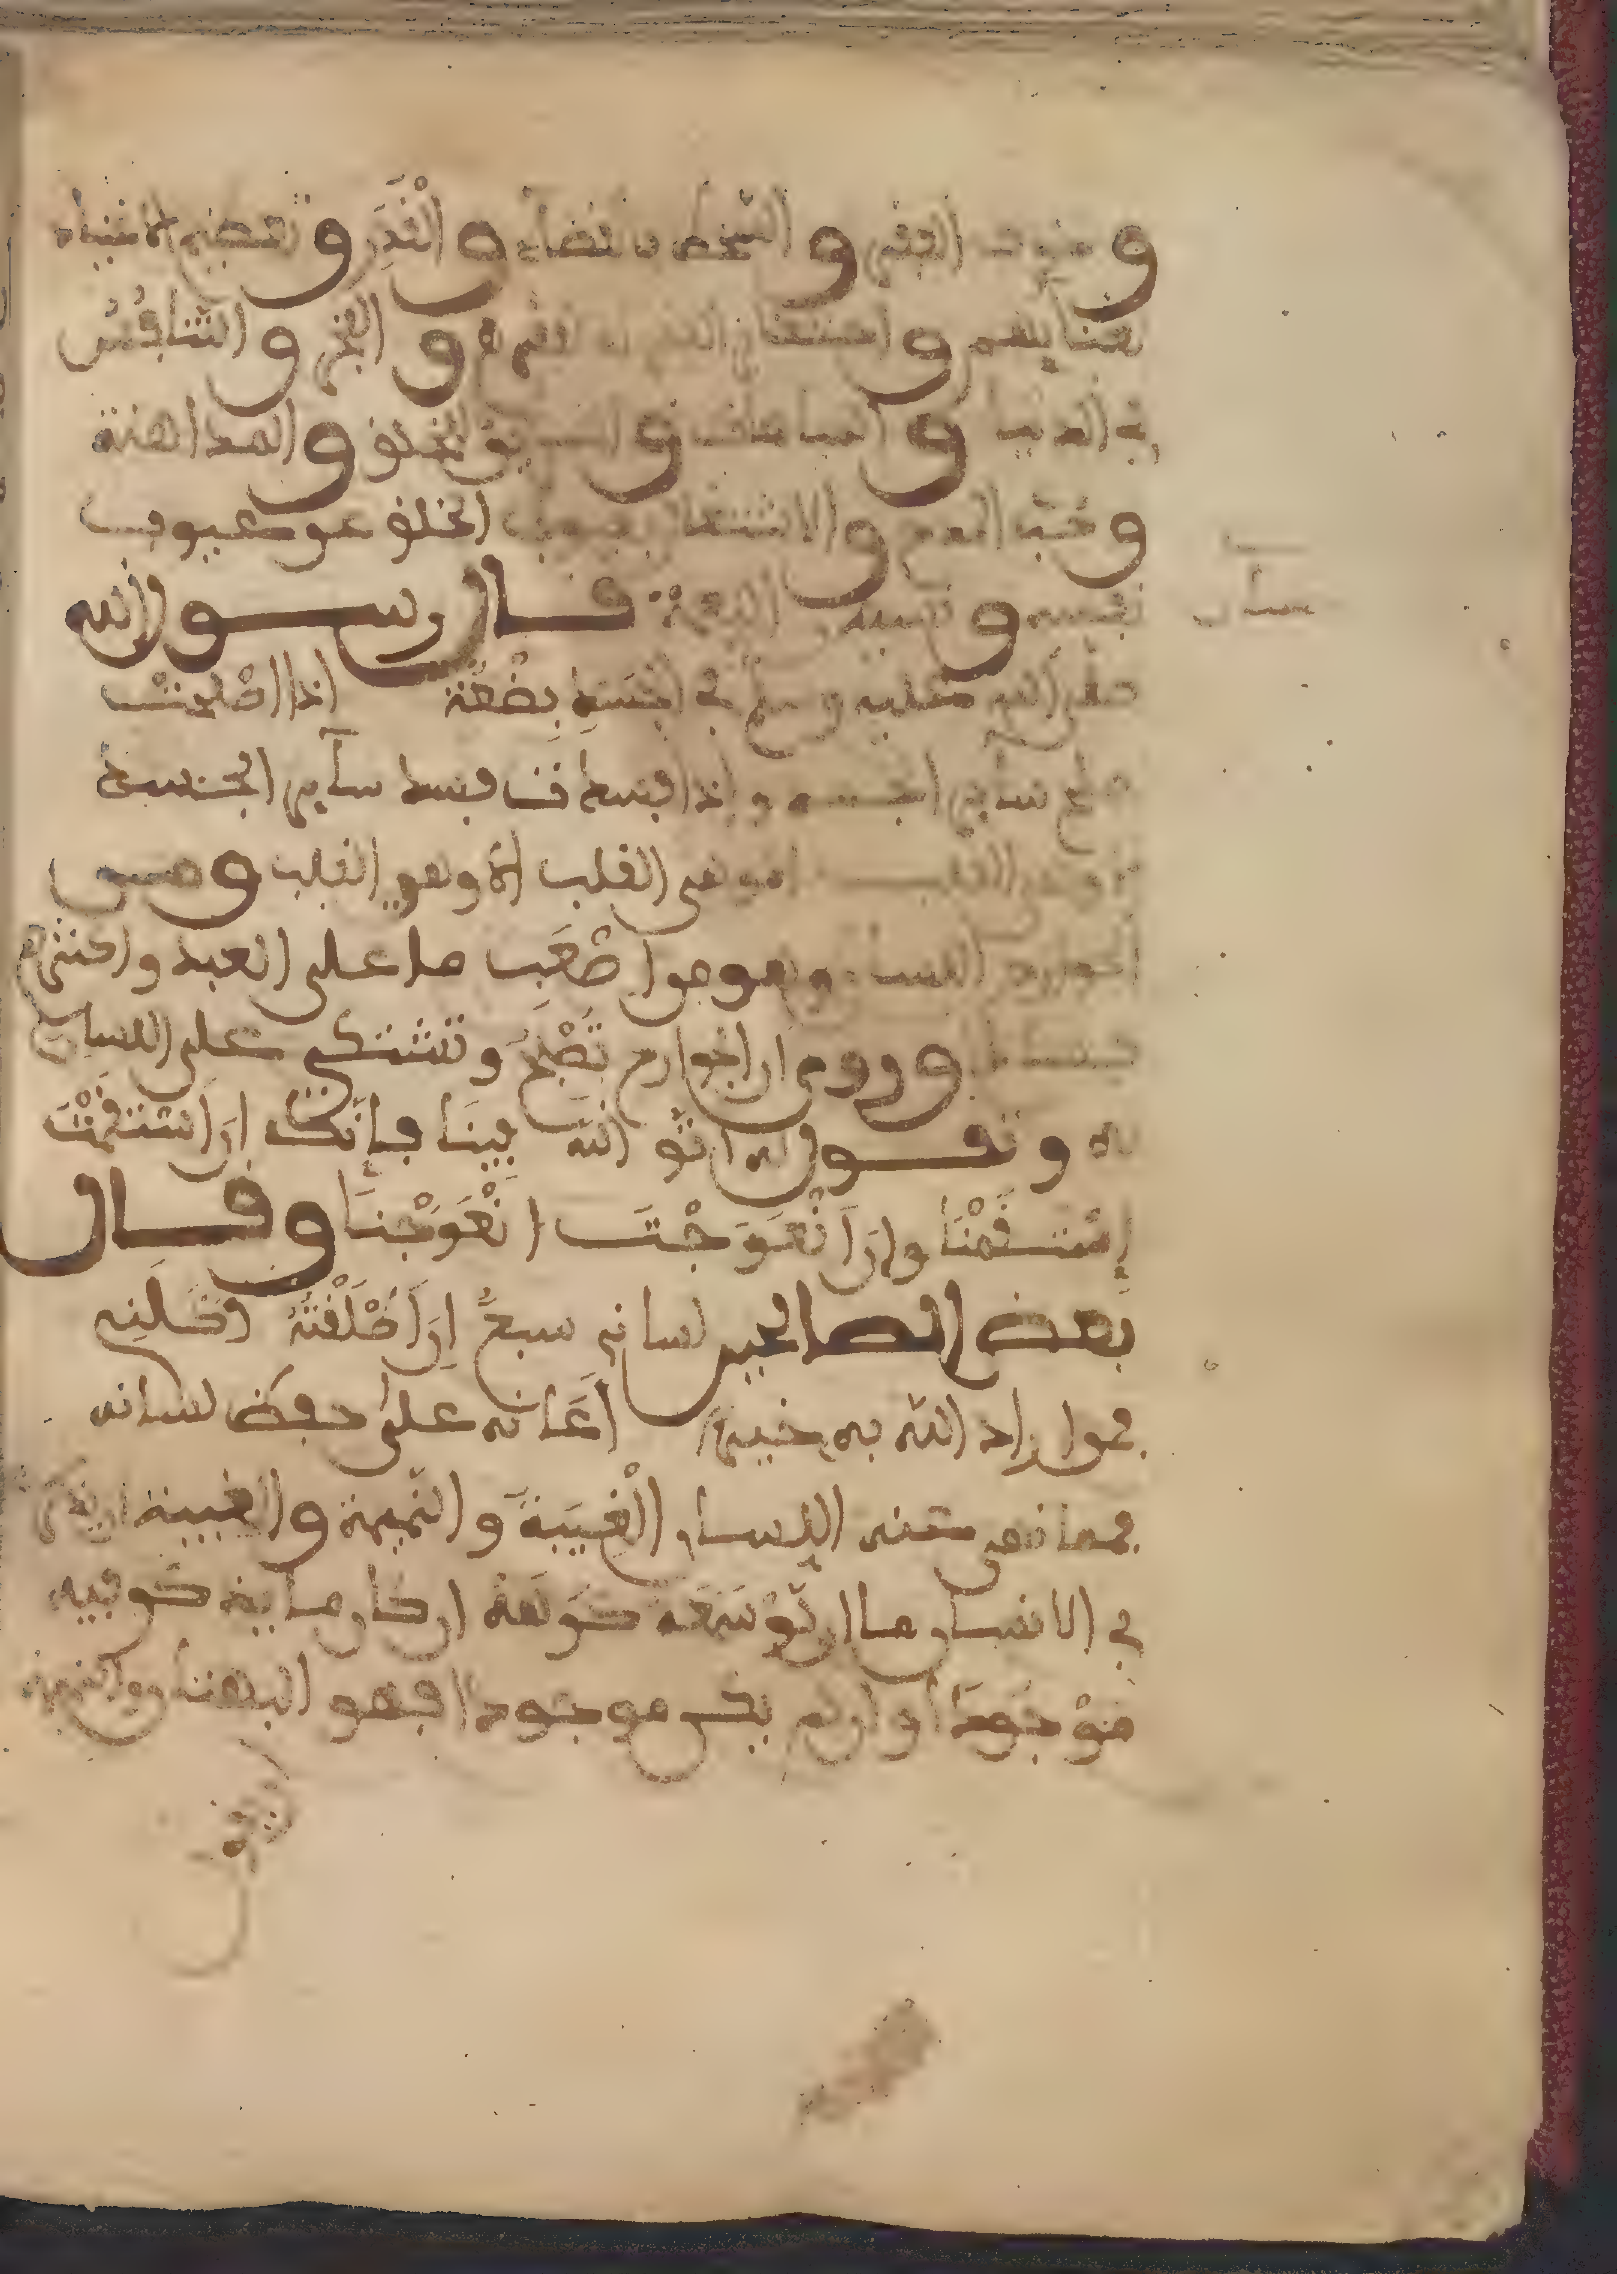 وخوف الفقر والسخط بالقضاء والقدر وتعظيم الاغنياء
لغنايهم والفخر والتنافس
في الدنيا والمباهات والخلق والمداهنة
وحب المدح والاشتغال بعيوب الخلق عن عيوب
نفسه ونسيان النعمة قال رسول الله
صلى الله عليه وسلم في الجسد بضعة اذا اصلحت
صلح سآير الجسد واذا فسدت فسد سآير الجسد
القلب الا وهو القلب ومن
الجوارح اللسان وهو من اصعب ما على العبد واكثر
وروي ان الجوارح تصبح وتشتكي على اللسان
وتقول له اتق الله بينا فإنك إن استقمت
إستقمنا وإن انعوجت انعوجنا وقال
بعض الصالحين لساني سبع إن أطلقته اكلني
فمن اراد الله به خيرا أعانه على حفظ لسانه
فمما نهي عنه اللسان الغيبة والنميمة والغيبة
في الانسان ما ان لو سمعه كرهه ان كان ما يذكر فيه
موجودا وان لم يكن موجودا فهو البهتان والنميمة